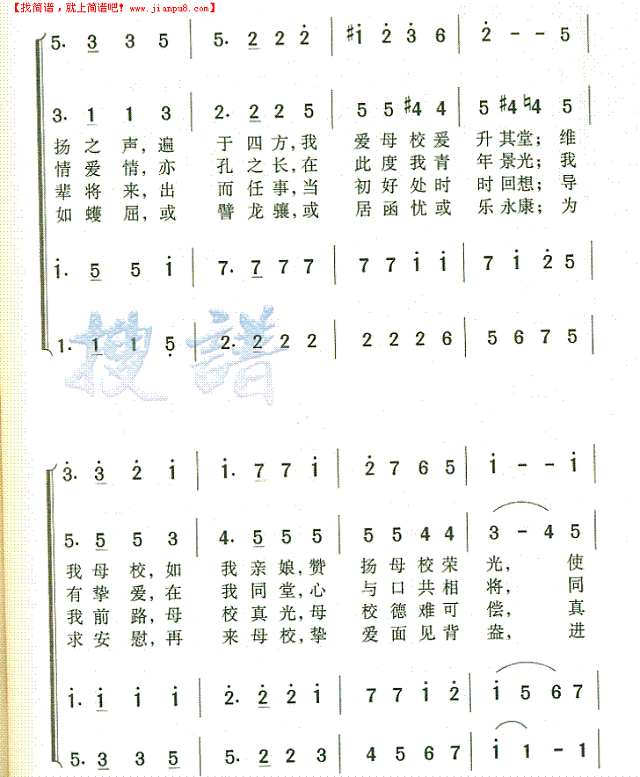 【找简谱，就上简谱吧！www.jianpu8.com】
5. 3 3 5 | 5. 2 2 2 | #1 2 3 6 | 2 - - 5
3. 1 1 3 | 2. 2 2 5 | 5 5 #4 4 | 5 #4 ♮4 5
扬之声，遍 于四方，我 爱母校爱 升其堂；维
情爱情，亦 孔之长，在 此度我青 年景光；我
辈将来，出 而任事，当 初好处时 时回想；导
如蠖屈，或 譬龙骧，或 居函忧或 乐永康；为
1. 5 5 1 | 7. 7 7 7 | 7 7 1 1 | 7 1 2 5
1. 1 1 5 | 2. 2 2 2 | 2 2 2 6 | 5 6 7 5
搜谱
3. 3 2 1 | 1. 7 7 1 | 2 7 6 5 | 1 - - 1
5. 5 5 3 | 4. 5 5 5 | 5 5 4 4 | 3 - 4 5
我母校，如 我亲娘，赞 扬母校荣 光，使
有挚爱，在 我同堂，心 与口共相 将，同
我前路，母 校真光，母 校德难可 偿，真
求安慰，再 来母校，挚 爱面见背 盎，进
1. 1 1 1 | 2. 2 2 1 | 7 7 1 2 | 1 5 6 7
5. 3 3 5 | 5. 2 2 3 | 4 5 6 7 | 1 1 - 1